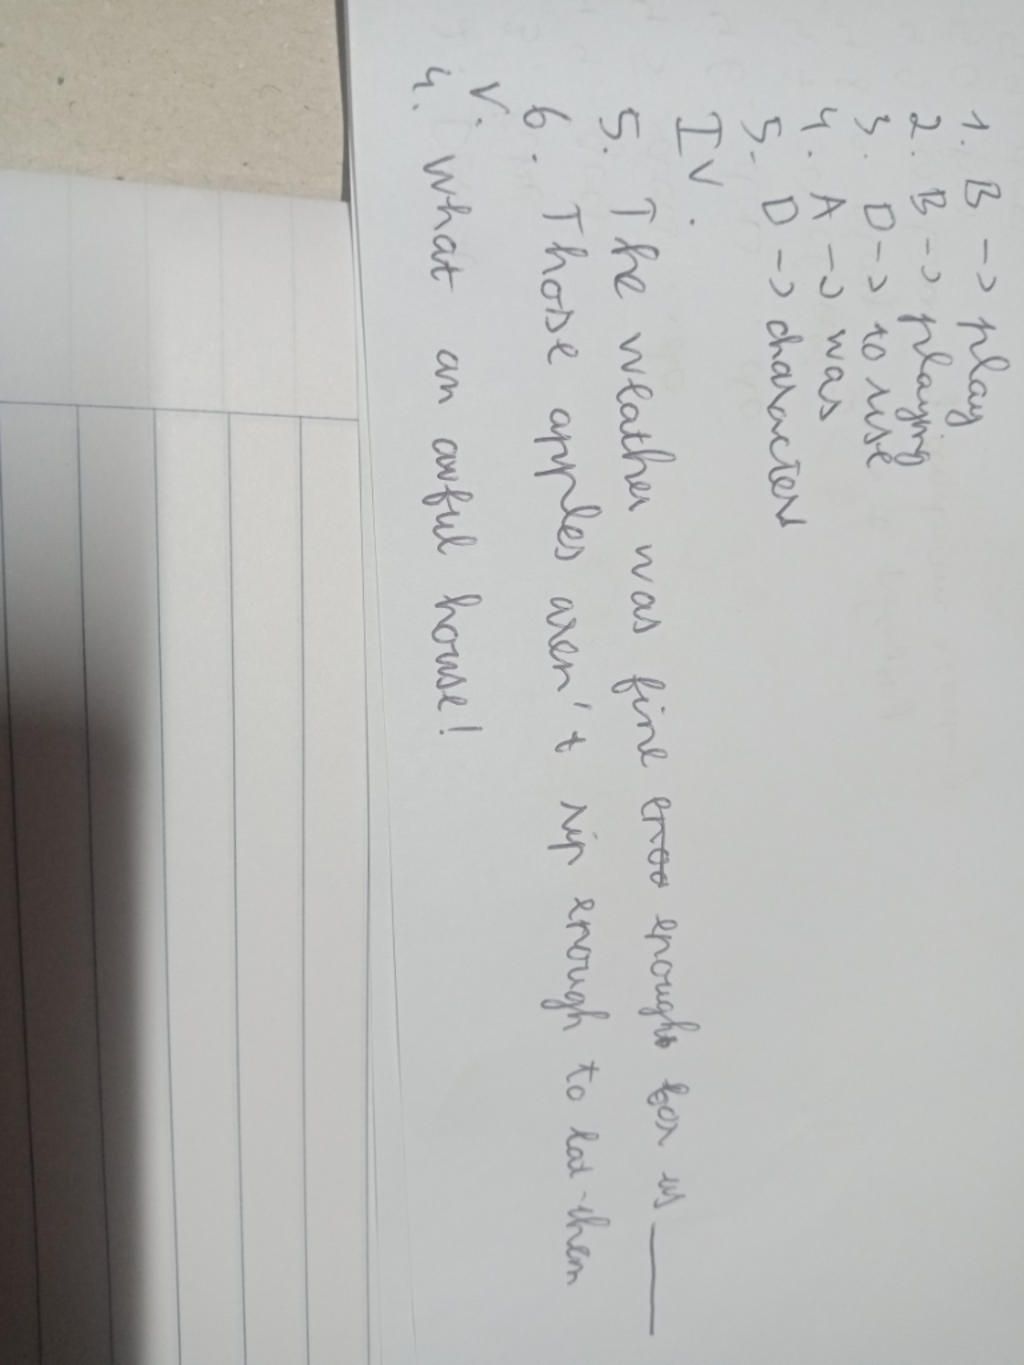 1. B -> play
2. B -> playing
3. D -> to rise
4. A -> was
5. D -> character
IV.
5. The weather was fine enoo enough for us ____
6. Those apples aren't rip enough to eat them
V.
4. What an awful house!